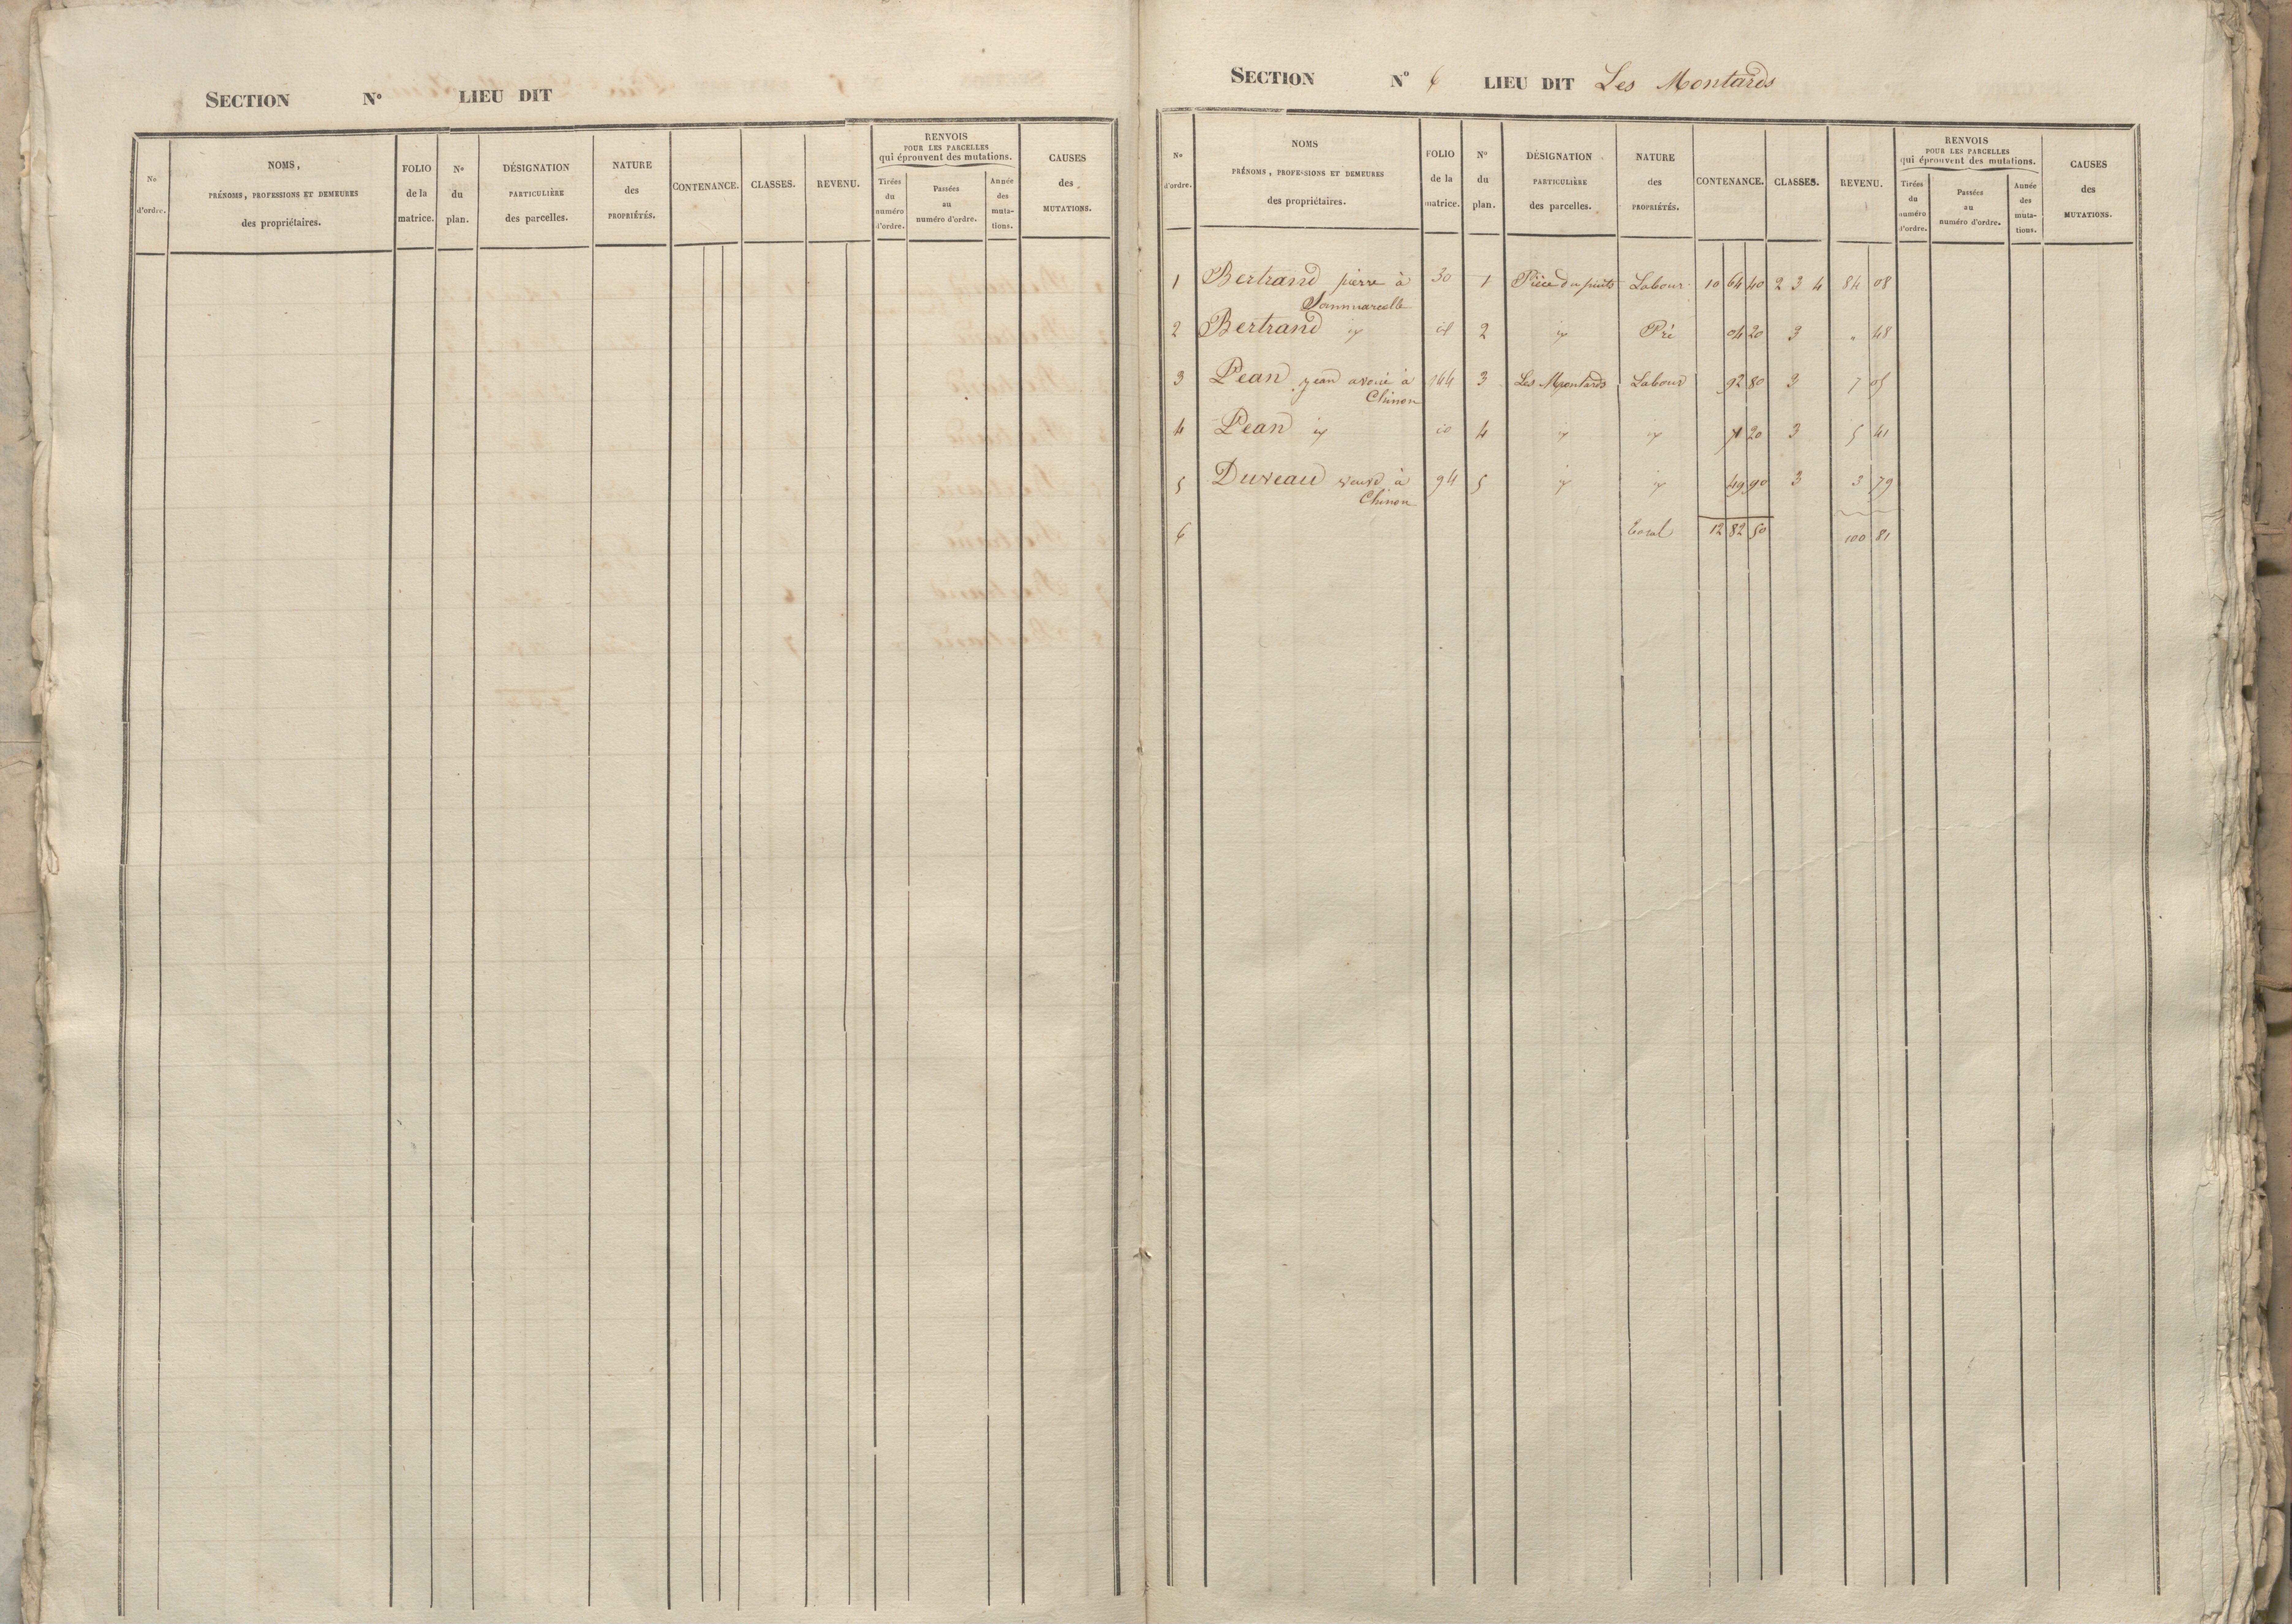 SECTION N° LIEU DIT
N° d'ordre. NOMS, PRÉNOMS, PROFESSIONS ET DEMEURES des propriétaires. FOLIO de la matrice. N° du plan. DÉSIGNATION PARTICULIÈRE des parcelles. NATURE des PROPRIÉTÉS. CONTENANCE. CLASSES. REVENU. RENVOIS POUR LES PARCELLES qui éprouvent des mutations. Tirées du numéro d'ordre. Passées au numéro d'ordre. Année des mutations. CAUSES des MUTATIONS.
SECTION N° 6 LIEU DIT Les Montards
N° d'ordre. NOMS PRÉNOMS, PROFESSIONS ET DEMEURES des propriétaires. FOLIO de la matrice. N° du plan. DÉSIGNATION PARTICULIÈRE des parcelles. NATURE des PROPRIÉTÉS. CONTENANCE. CLASSES. REVENU. RENVOIS POUR LES PARCELLES qui éprouvent des mutations. Tirées du numéro d'ordre. Passées au numéro d'ordre. Année des mutations. CAUSES des MUTATIONS.
1 Bertrand pierre à 30 1 Pièce du puits Labour 10 64 40 2 3 4 84 08
Sammarcolle
2 Bertrand id 2 Pré 04 20 3 " 48
3 Pean jean avoué à 144 3 Les Montards Labour 92 80 3 7 05
Chinon
4 Pean id 4 71 20 3 5 41
5 Duveau veuve à 94 5 49 90 3 3 79
Chinon
6 Total 12 82 50 100 81